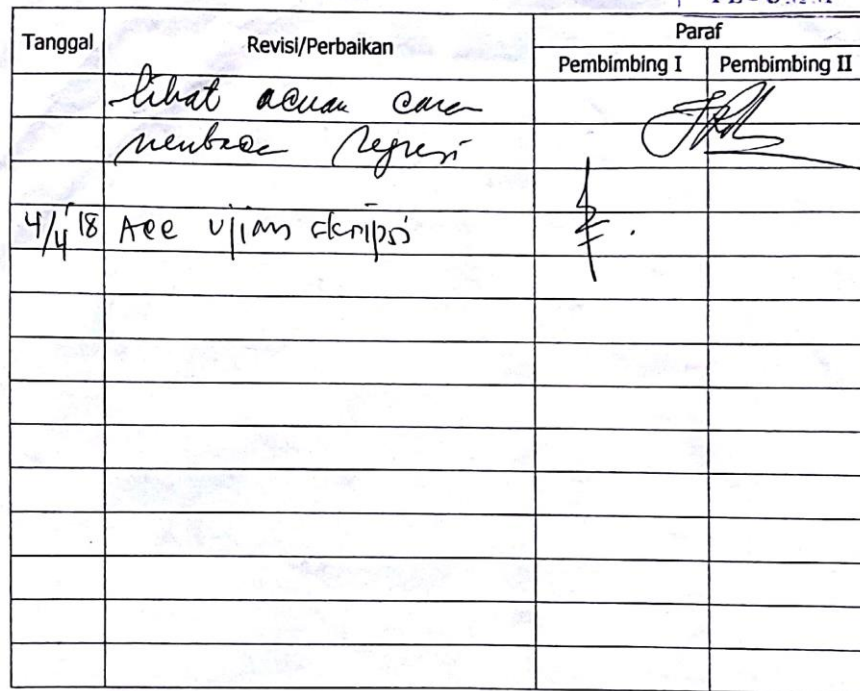 Tanggal
Revisi/Perbaikan
Paraf
Pembimbing I
Pembimbing II
lihat acuan cara
membaca Regresi
4/4 '18 Acc ujian skripsi